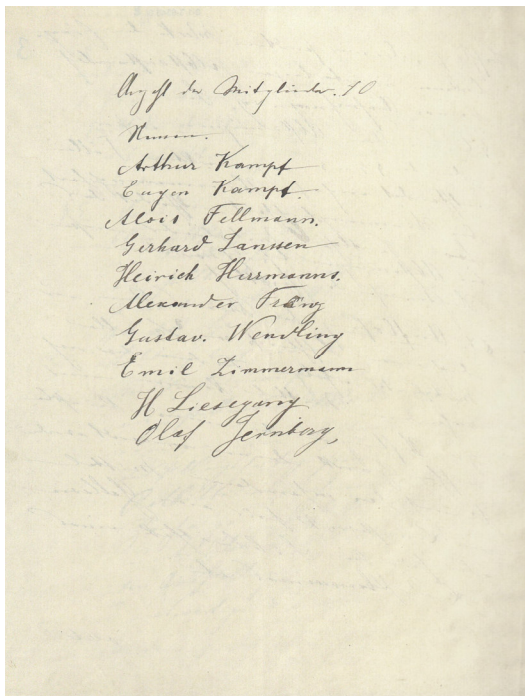 Anzahl der Mitglieder. 10
Namen.
Arthur Kampf
Eugen Kampf.
Alois Fellmann.
Gerhard Janssen
Heirich Herrmanns.
Alexander Frenz
Gustav. Wendling
Emil Zimmermann
H Liesegang
Olaf Jernberg,